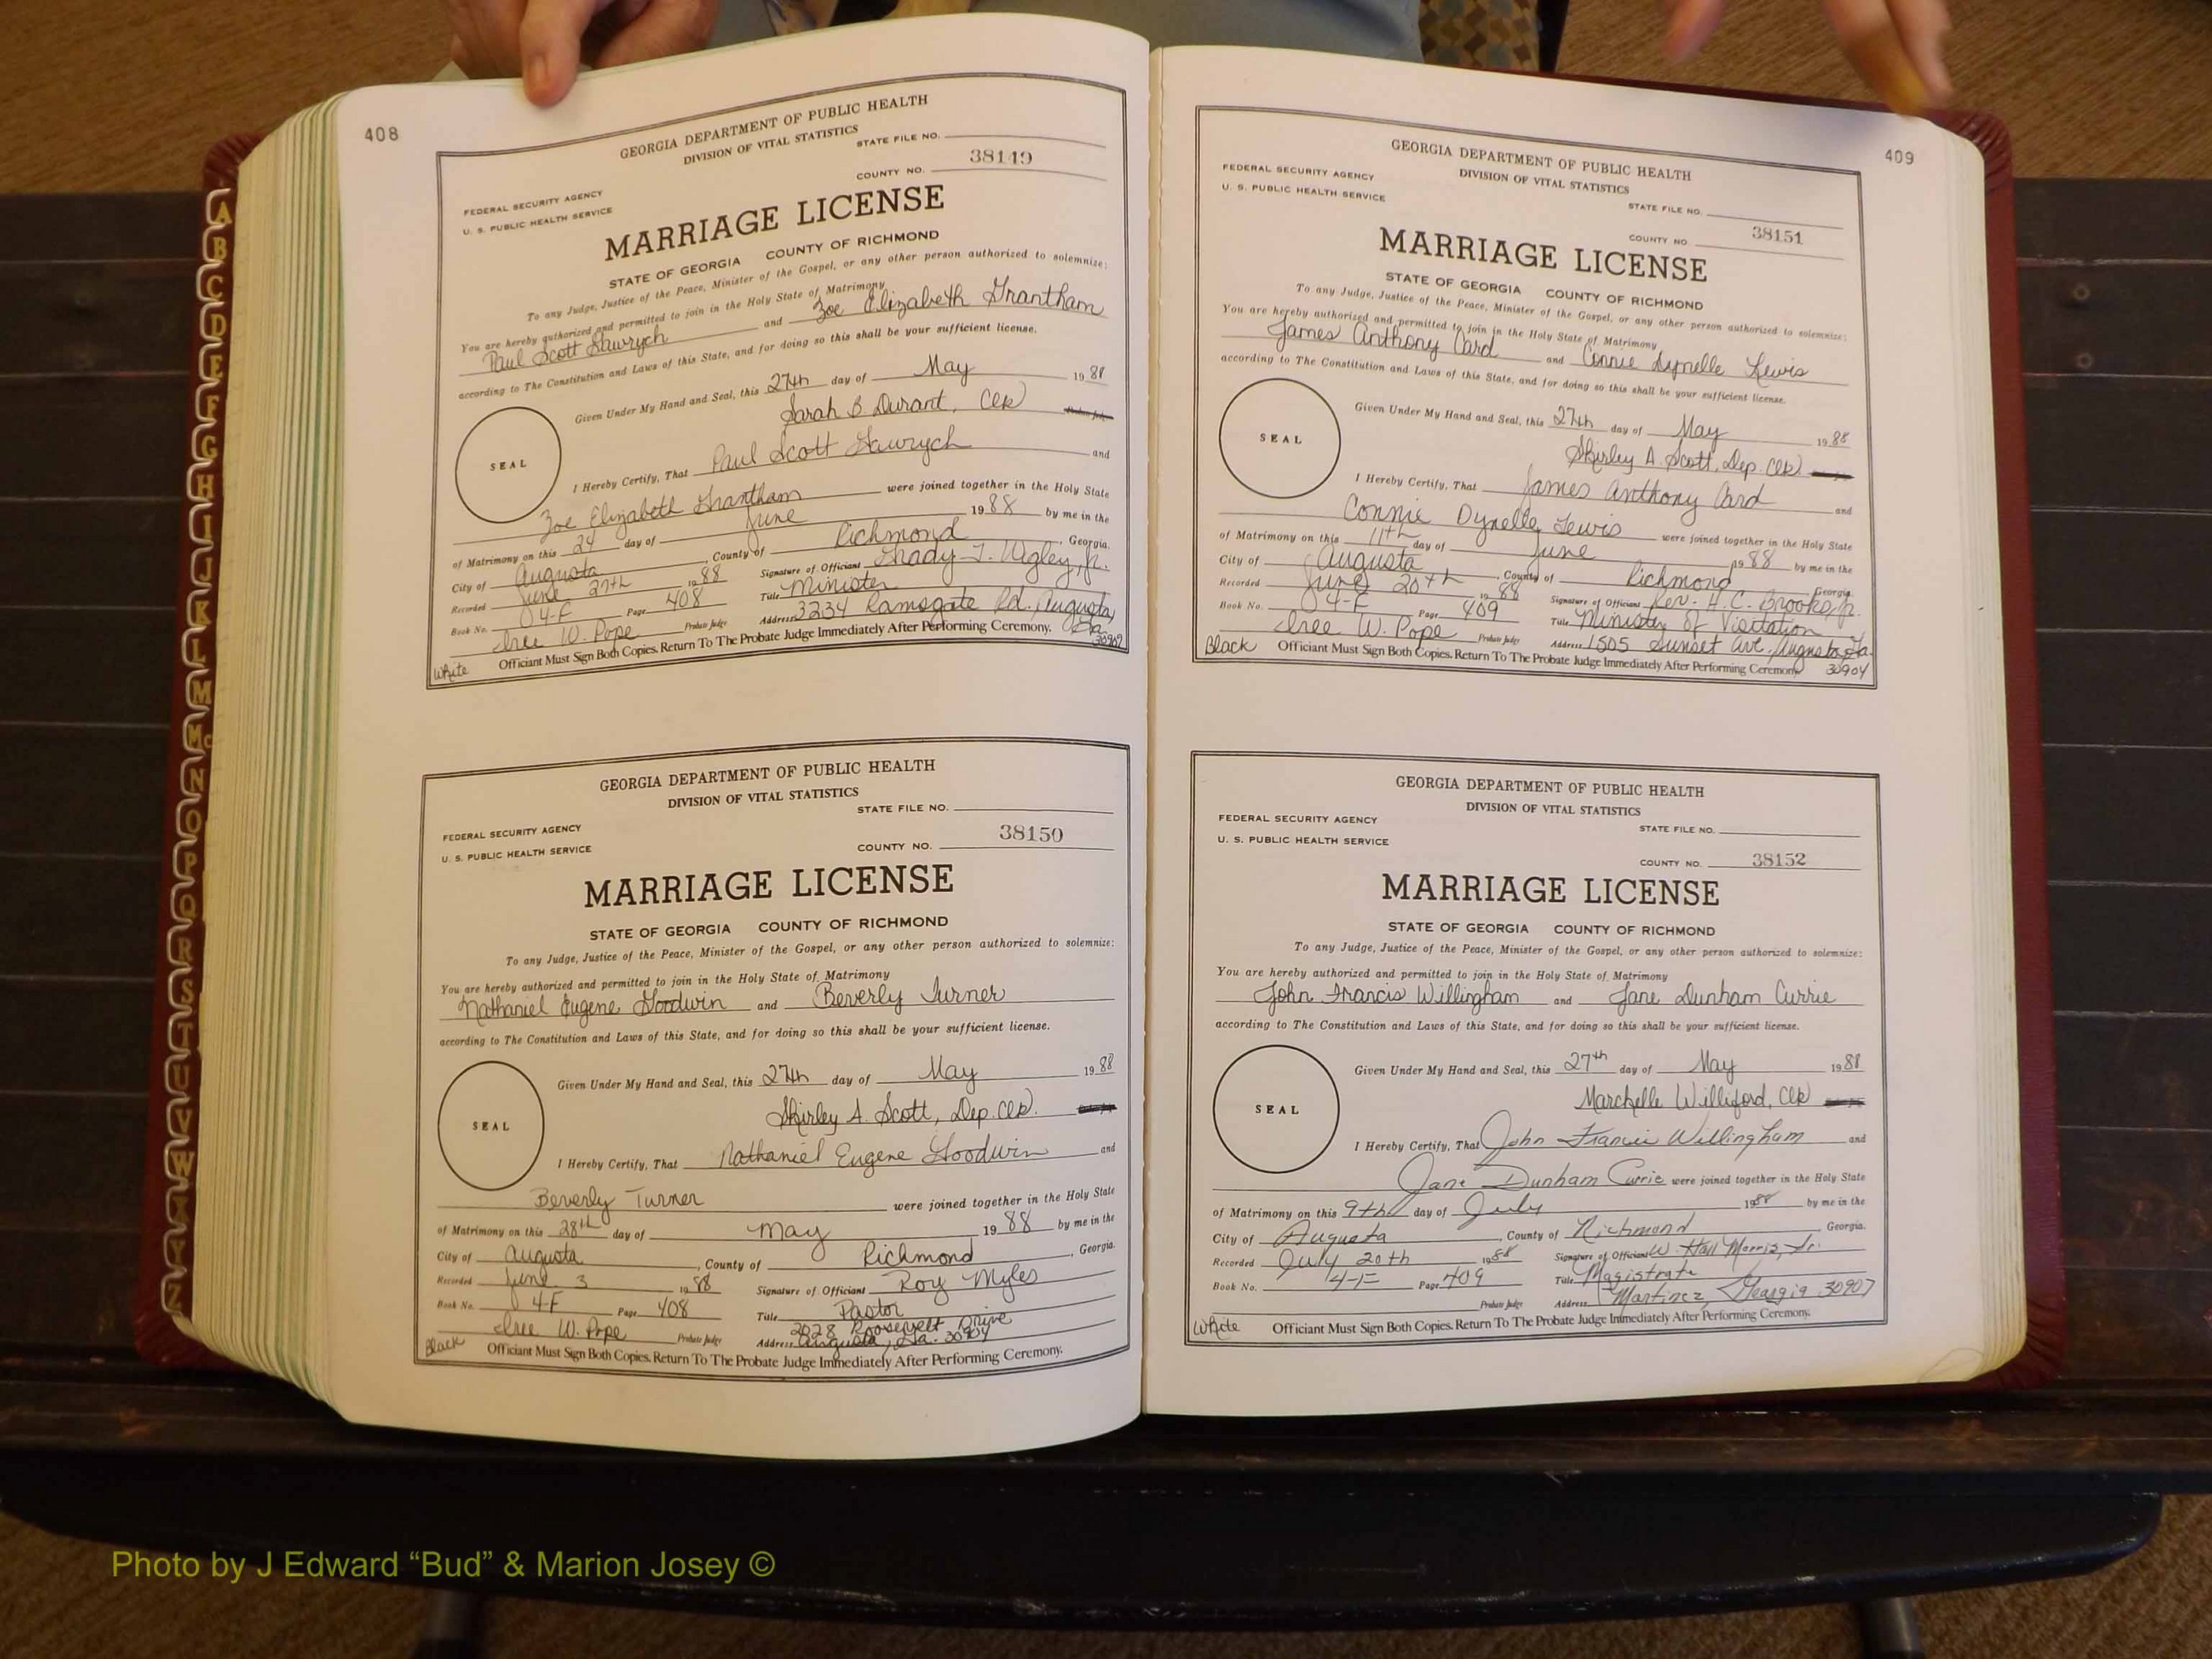 408
GEORGIA DEPARTMENT OF PUBLIC HEALTH
DIVISION OF VITAL STATISTICS
STATE FILE NO.
COUNTY NO. 38149
FEDERAL SECURITY AGENCY
U. S. PUBLIC HEALTH SERVICE
MARRIAGE LICENSE
STATE OF GEORGIA COUNTY OF RICHMOND
To any Judge, Justice of the Peace, Minister of the Gospel, or any other person authorized to solemnize:
You are hereby authorized and permitted to join in the Holy State of Matrimony
Paul Scott Gawrych and Zoe Elizabeth Grantham
according to The Constitution and Laws of this State, and for doing so this shall be your sufficient license.
Given Under My Hand and Seal, this 27th day of May 1988
Sarah B. Durant, Clk
SEAL
I Hereby Certify, That Paul Scott Gawrych and
Zoe Elizabeth Grantham were joined together in the Holy State
of Matrimony on this 24 day of June 1988 by me in the
City of Augusta, County of Richmond, Georgia.
Recorded June 27th 1988 Signature of Officiant Grady T. Wigley, Jr.
Book No. 4-F Page 408 Title Minister
Iree W. Pope Probate Judge Address 3234 Ramsgate Rd. Augusta, Ga. 30909
White Officiant Must Sign Both Copies. Return To The Probate Judge Immediately After Performing Ceremony.
GEORGIA DEPARTMENT OF PUBLIC HEALTH
DIVISION OF VITAL STATISTICS
STATE FILE NO.
FEDERAL SECURITY AGENCY
U. S. PUBLIC HEALTH SERVICE
COUNTY NO. 38150
MARRIAGE LICENSE
STATE OF GEORGIA COUNTY OF RICHMOND
To any Judge, Justice of the Peace, Minister of the Gospel, or any other person authorized to solemnize:
You are hereby authorized and permitted to join in the Holy State of Matrimony
Nathaniel Eugene Goodwin and Beverly Turner
according to The Constitution and Laws of this State, and for doing so this shall be your sufficient license.
Given Under My Hand and Seal, this 27th day of May 1988
Shirley A. Scott, Dep. Clk.
SEAL
I Hereby Certify, That Nathaniel Eugene Goodwin and
Beverly Turner were joined together in the Holy State
of Matrimony on this 28th day of May 1988 by me in the
City of Augusta, County of Richmond, Georgia.
Recorded June 3 1988 Signature of Officiant Roy Myles
Book No. 4-F Page 408 Title Pastor
Iree W. Pope Probate Judge Address 2028 Roosevelt Drive Augusta, Ga. 30904
Black Officiant Must Sign Both Copies. Return To The Probate Judge Immediately After Performing Ceremony.
409
GEORGIA DEPARTMENT OF PUBLIC HEALTH
DIVISION OF VITAL STATISTICS
FEDERAL SECURITY AGENCY
U. S. PUBLIC HEALTH SERVICE
STATE FILE NO.
COUNTY NO. 38151
MARRIAGE LICENSE
STATE OF GEORGIA COUNTY OF RICHMOND
To any Judge, Justice of the Peace, Minister of the Gospel, or any other person authorized to solemnize:
You are hereby authorized and permitted to join in the Holy State of Matrimony
James Anthony Card and Connie Dynelle Lewis
according to The Constitution and Laws of this State, and for doing so this shall be your sufficient license.
Given Under My Hand and Seal, this 27th day of May 1988
Shirley A. Scott, Dep. Clk
SEAL
I Hereby Certify, That James Anthony Card and
Connie Dynelle Lewis were joined together in the Holy State
of Matrimony on this 11th day of June 1988 by me in the
City of Augusta, County of Richmond, Georgia.
Recorded June 20th 1988 Signature of Officiant Rev. H.C. Brooks, Jr.
Book No. 4-F Page 409 Title Minister of Visitation
Iree W. Pope Probate Judge Address 1505 Sunset Ave. Augusta, Ga. 30904
Black Officiant Must Sign Both Copies. Return To The Probate Judge Immediately After Performing Ceremony.
GEORGIA DEPARTMENT OF PUBLIC HEALTH
DIVISION OF VITAL STATISTICS
FEDERAL SECURITY AGENCY
STATE FILE NO.
U. S. PUBLIC HEALTH SERVICE
COUNTY NO. 38152
MARRIAGE LICENSE
STATE OF GEORGIA COUNTY OF RICHMOND
To any Judge, Justice of the Peace, Minister of the Gospel, or any other person authorized to solemnize:
You are hereby authorized and permitted to join in the Holy State of Matrimony
John Francis Willingham and Jane Dunham Currie
according to The Constitution and Laws of this State, and for doing so this shall be your sufficient license.
Given Under My Hand and Seal, this 27th day of May 1988
Marchelle Williford, Clk
SEAL
I Hereby Certify, That John Francis Willingham and
Jane Dunham Currie were joined together in the Holy State
of Matrimony on this 9th day of July 1988 by me in the
City of Augusta, County of Richmond Georgia.
Recorded July 20th 1988 Signature of Officiant W. Hall Morris, Sr.
Book No. 4-F Page 409 Title Magistrate
Probate Judge Address Martinez, Georgia 30907
White Officiant Must Sign Both Copies. Return To The Probate Judge Immediately After Performing Ceremony.
A
B
C
D
E
F
G
H
I
J
K
L
M
Mc
N
O
P
Q
R
S
T
U
V
W
X
Y
Z
Photo by J Edward “Bud” & Marion Josey ©